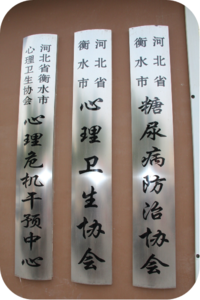 河北省衡水市
心理卫生协会
心理危机干预中心
河北省
衡水市
心理卫生协会
河北省
衡水市
糖尿病防治协会